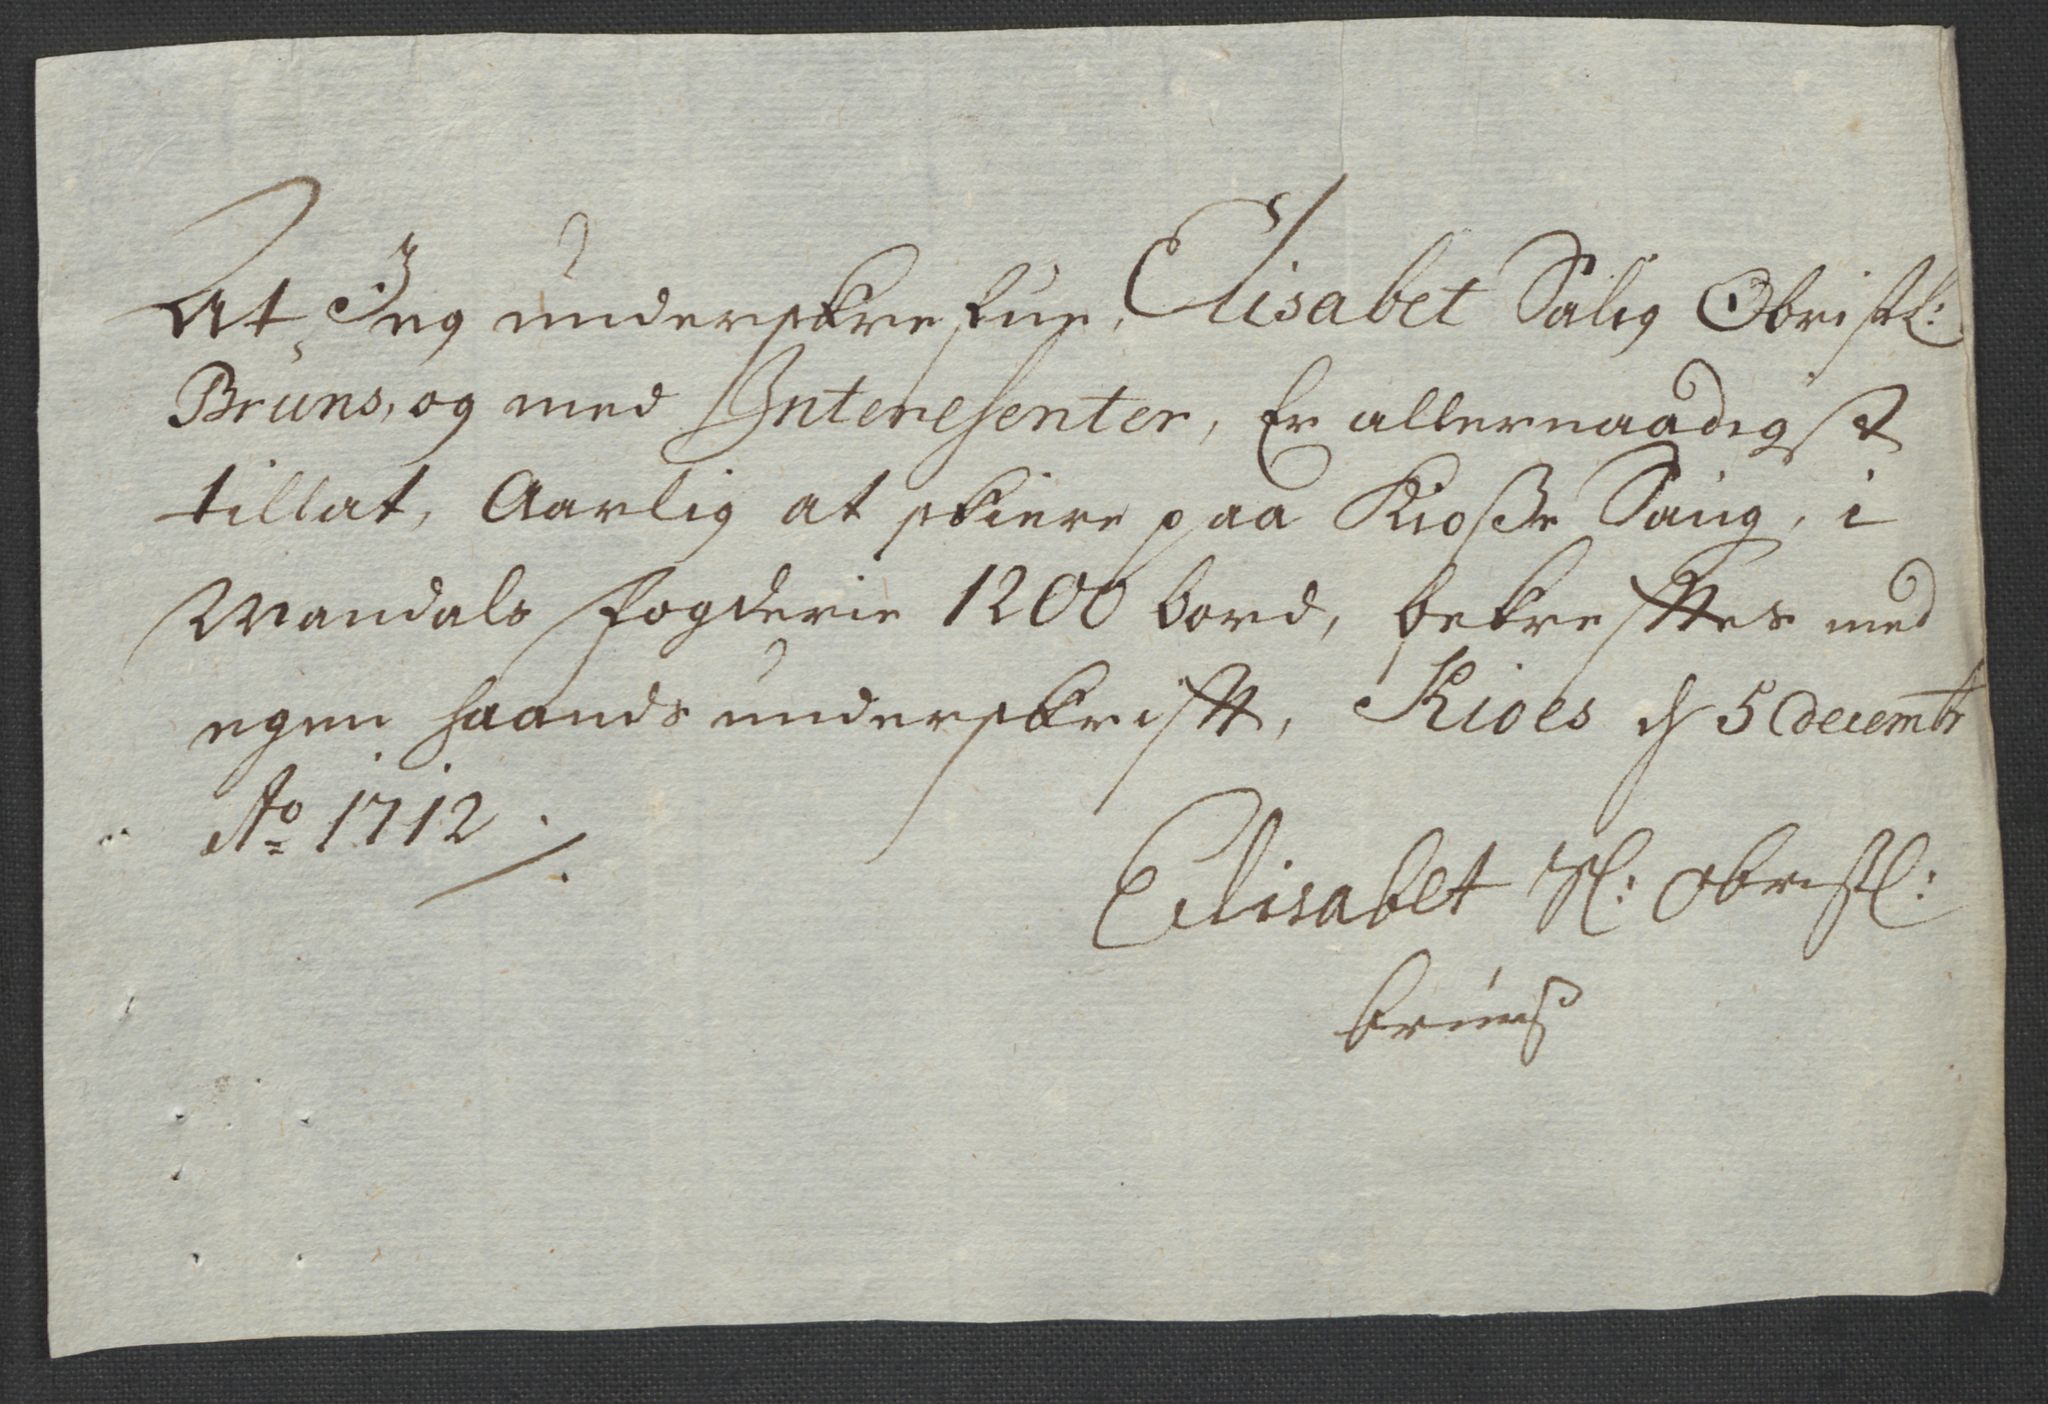 At Jeg underskrefune, Elisabet Salig Obristl:
Bruns, og med Interesenter, Er allernaadigst
tillat, Aarlig at skiere paa Kioße Saug, i
Mandals fogderie 1200 bord, bekrefftes med
egen haands underskrifft, Kioes d 5 decembr
Ao 1712
Elisabet Sl: obristl:
bruns